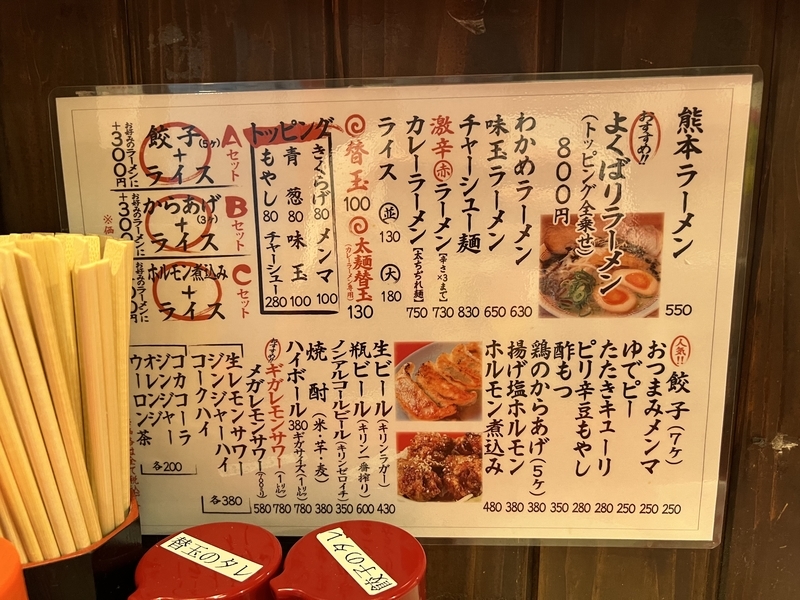 熊本ラーメン 550
おすすめ!!
よくばりラーメン
(トッピング全乗せ)
800円
わかめラーメン 630
味玉ラーメン 650
チャーシュー麺 830
激辛赤ラーメン[辛さ×3まで] 730
カレーラーメン[太ちぢれ麺] 750
ライス 並 130 大 180
替玉 100
太麺替玉 130
(カレーラーメン専用)
トッピング
きくらげ 80 メンマ 100
青葱 80 味玉 100
もやし 80 チャーシュー 280
Aセット
餃子(5ヶ)+ライス
お好みのラーメンに
+300円
Bセット
からあげ(3ヶ)+ライス
お好みのラーメンに
+300円
Cセット
ホルモン煮込み+ライス
お好みのラーメンに
人気!!
餃子(7ヶ) 250
おつまみメンマ 250
ゆでピー 250
たたきキューリ 280
ピリ辛豆もやし 280
酢もつ 350
鶏のからあげ(5ヶ) 380
揚げ塩ホルモン 380
ホルモン煮込み 480
生ビール(キリンラガー) 430
瓶ビール(キリン一番搾り) 600
ノンアルコールビール(キリンゼロイチ) 350
焼酎(米・芋・麦) 380
ハイボール 380 ギガサイズ(1リットル) 780
ギガレモンサワー(1リットル) 780
メガレモンサワー 580
生レモンサワー
ジンジャーハイ
コークハイ
各380
ジンジャー
コカコーラ
オレンジ
ウーロン茶
各200
替玉のタレ
餃子のタレ